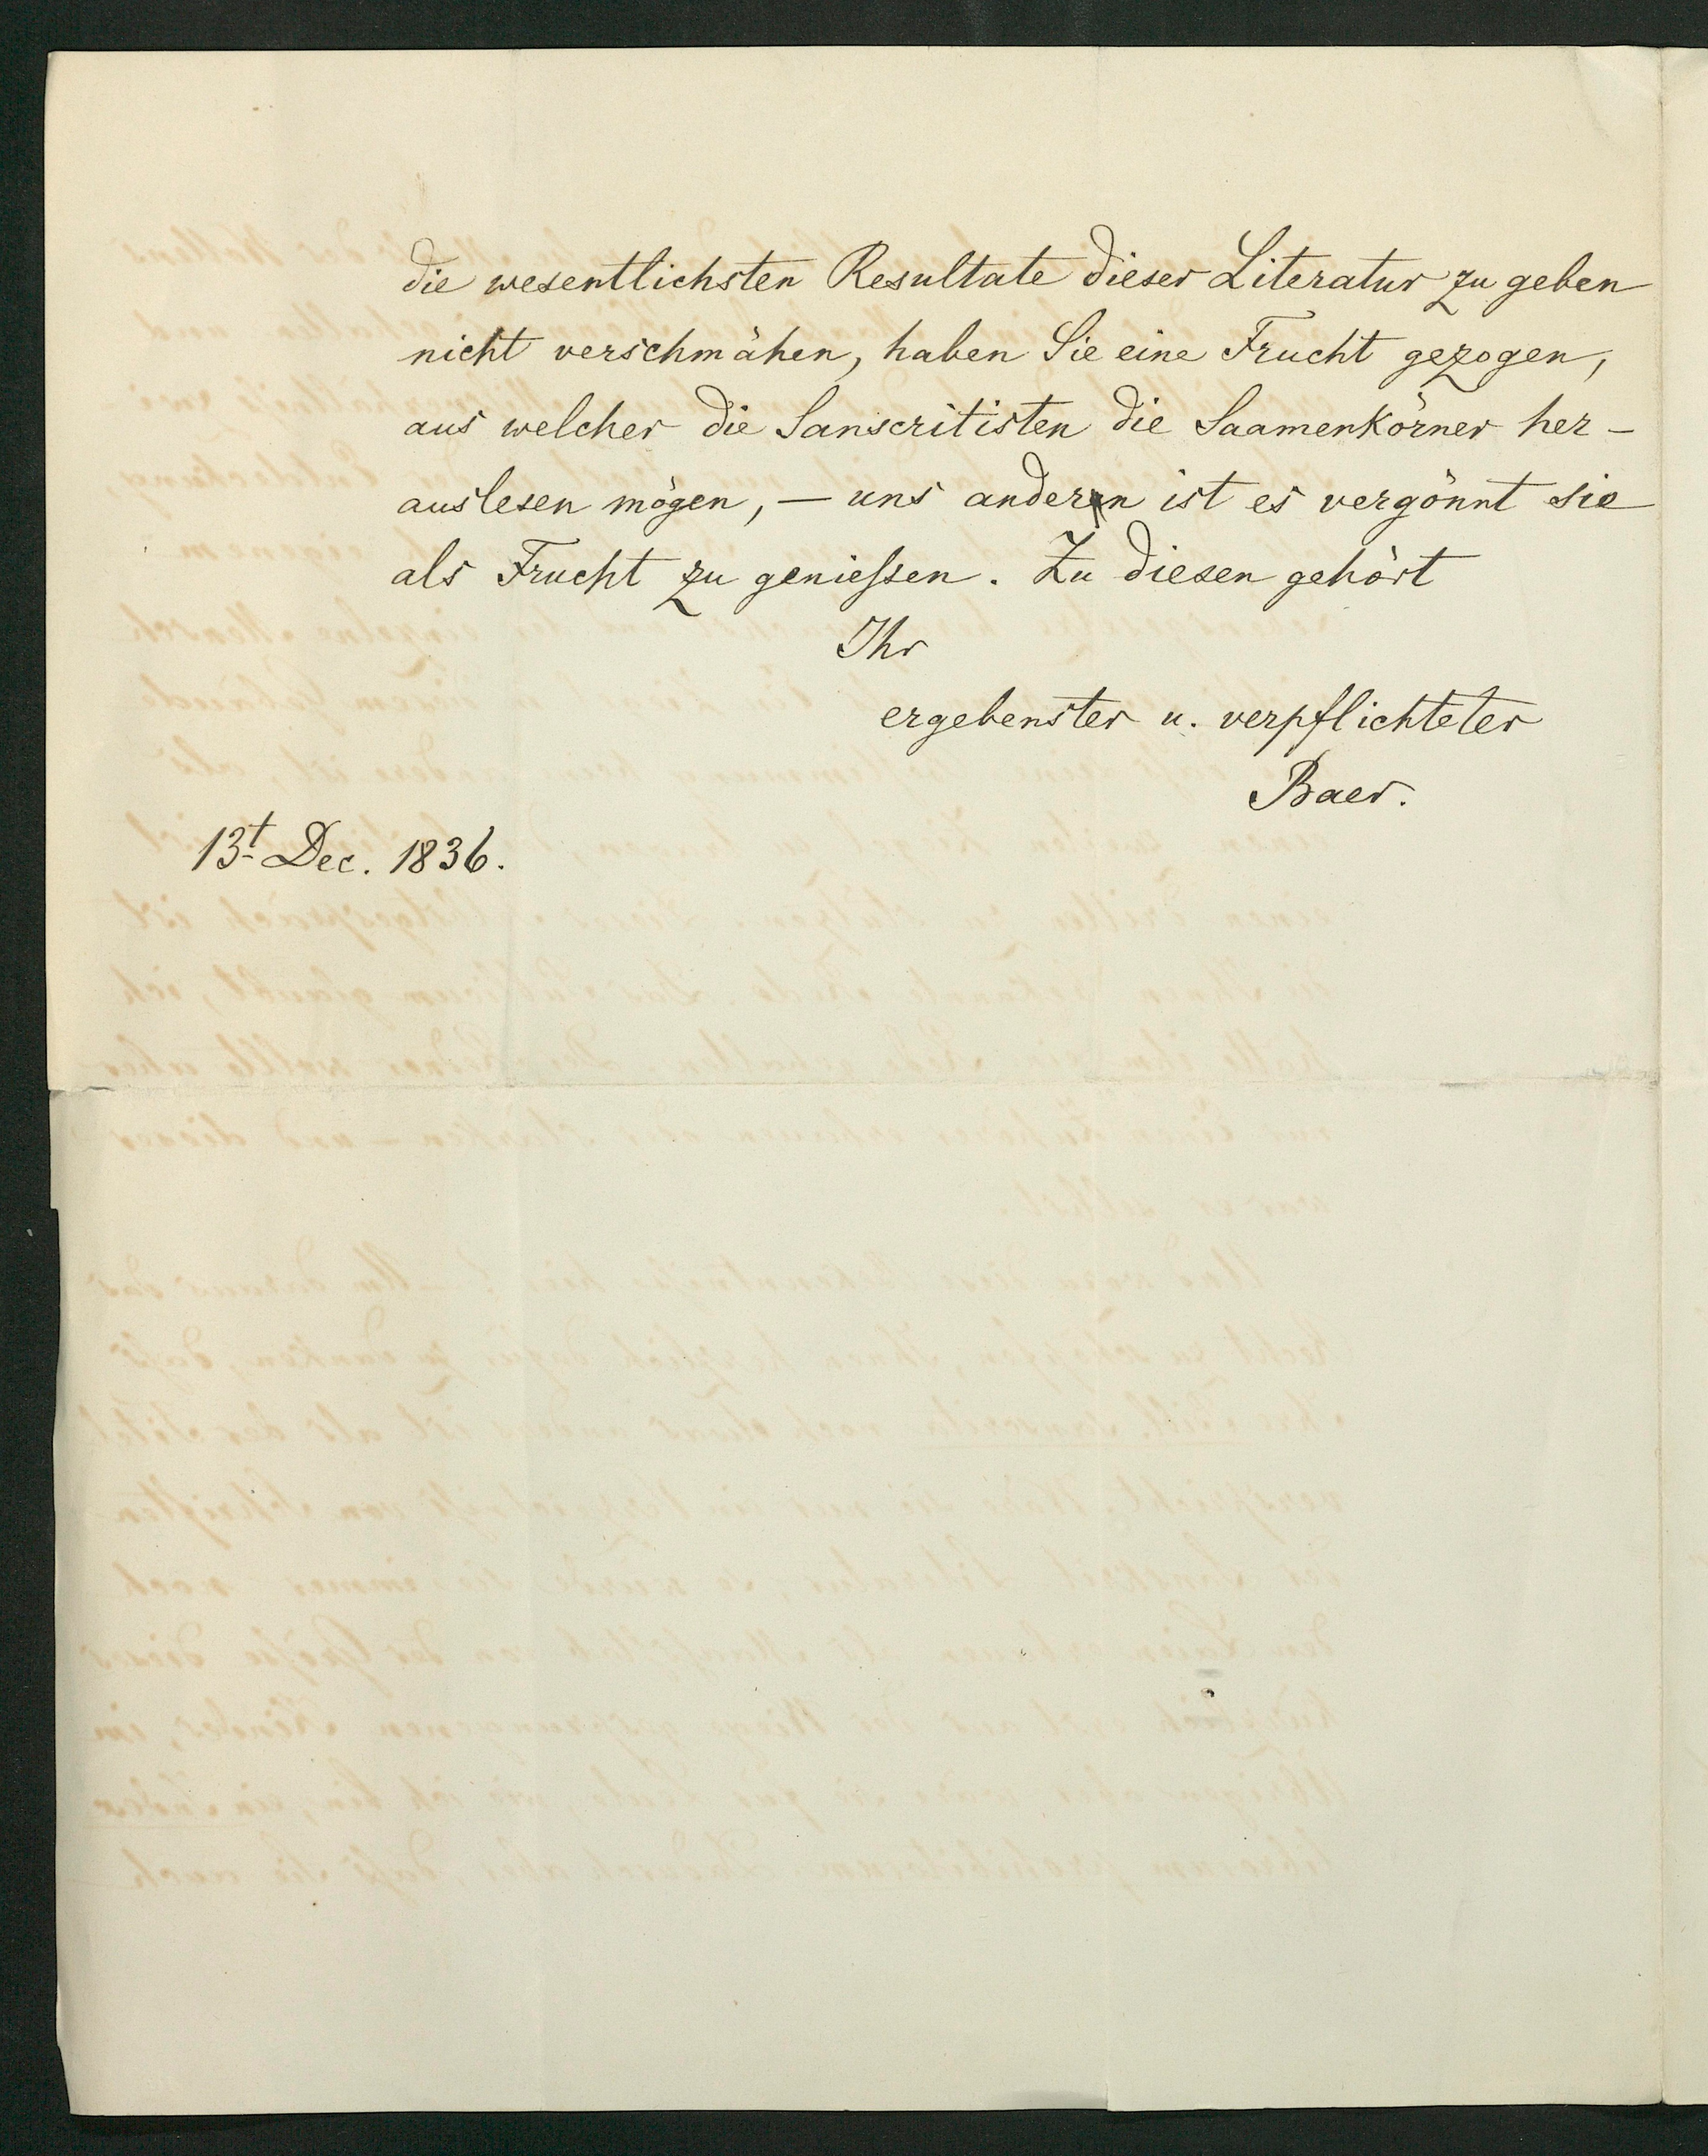 die wesentlichsten Resultate dieser Literatur zu geben
nicht verschmähen, haben Sie eine Frucht gezogen,
aus welcher die Sanscritisten die Saamenkörner her-
auslesen mögen, — uns andern ist es vergönnt sie
als Frucht zu genießen. Zu diesen gehört
Ihr
ergebenster u. verpflichteter
Baer.
13t Dec. 1836.